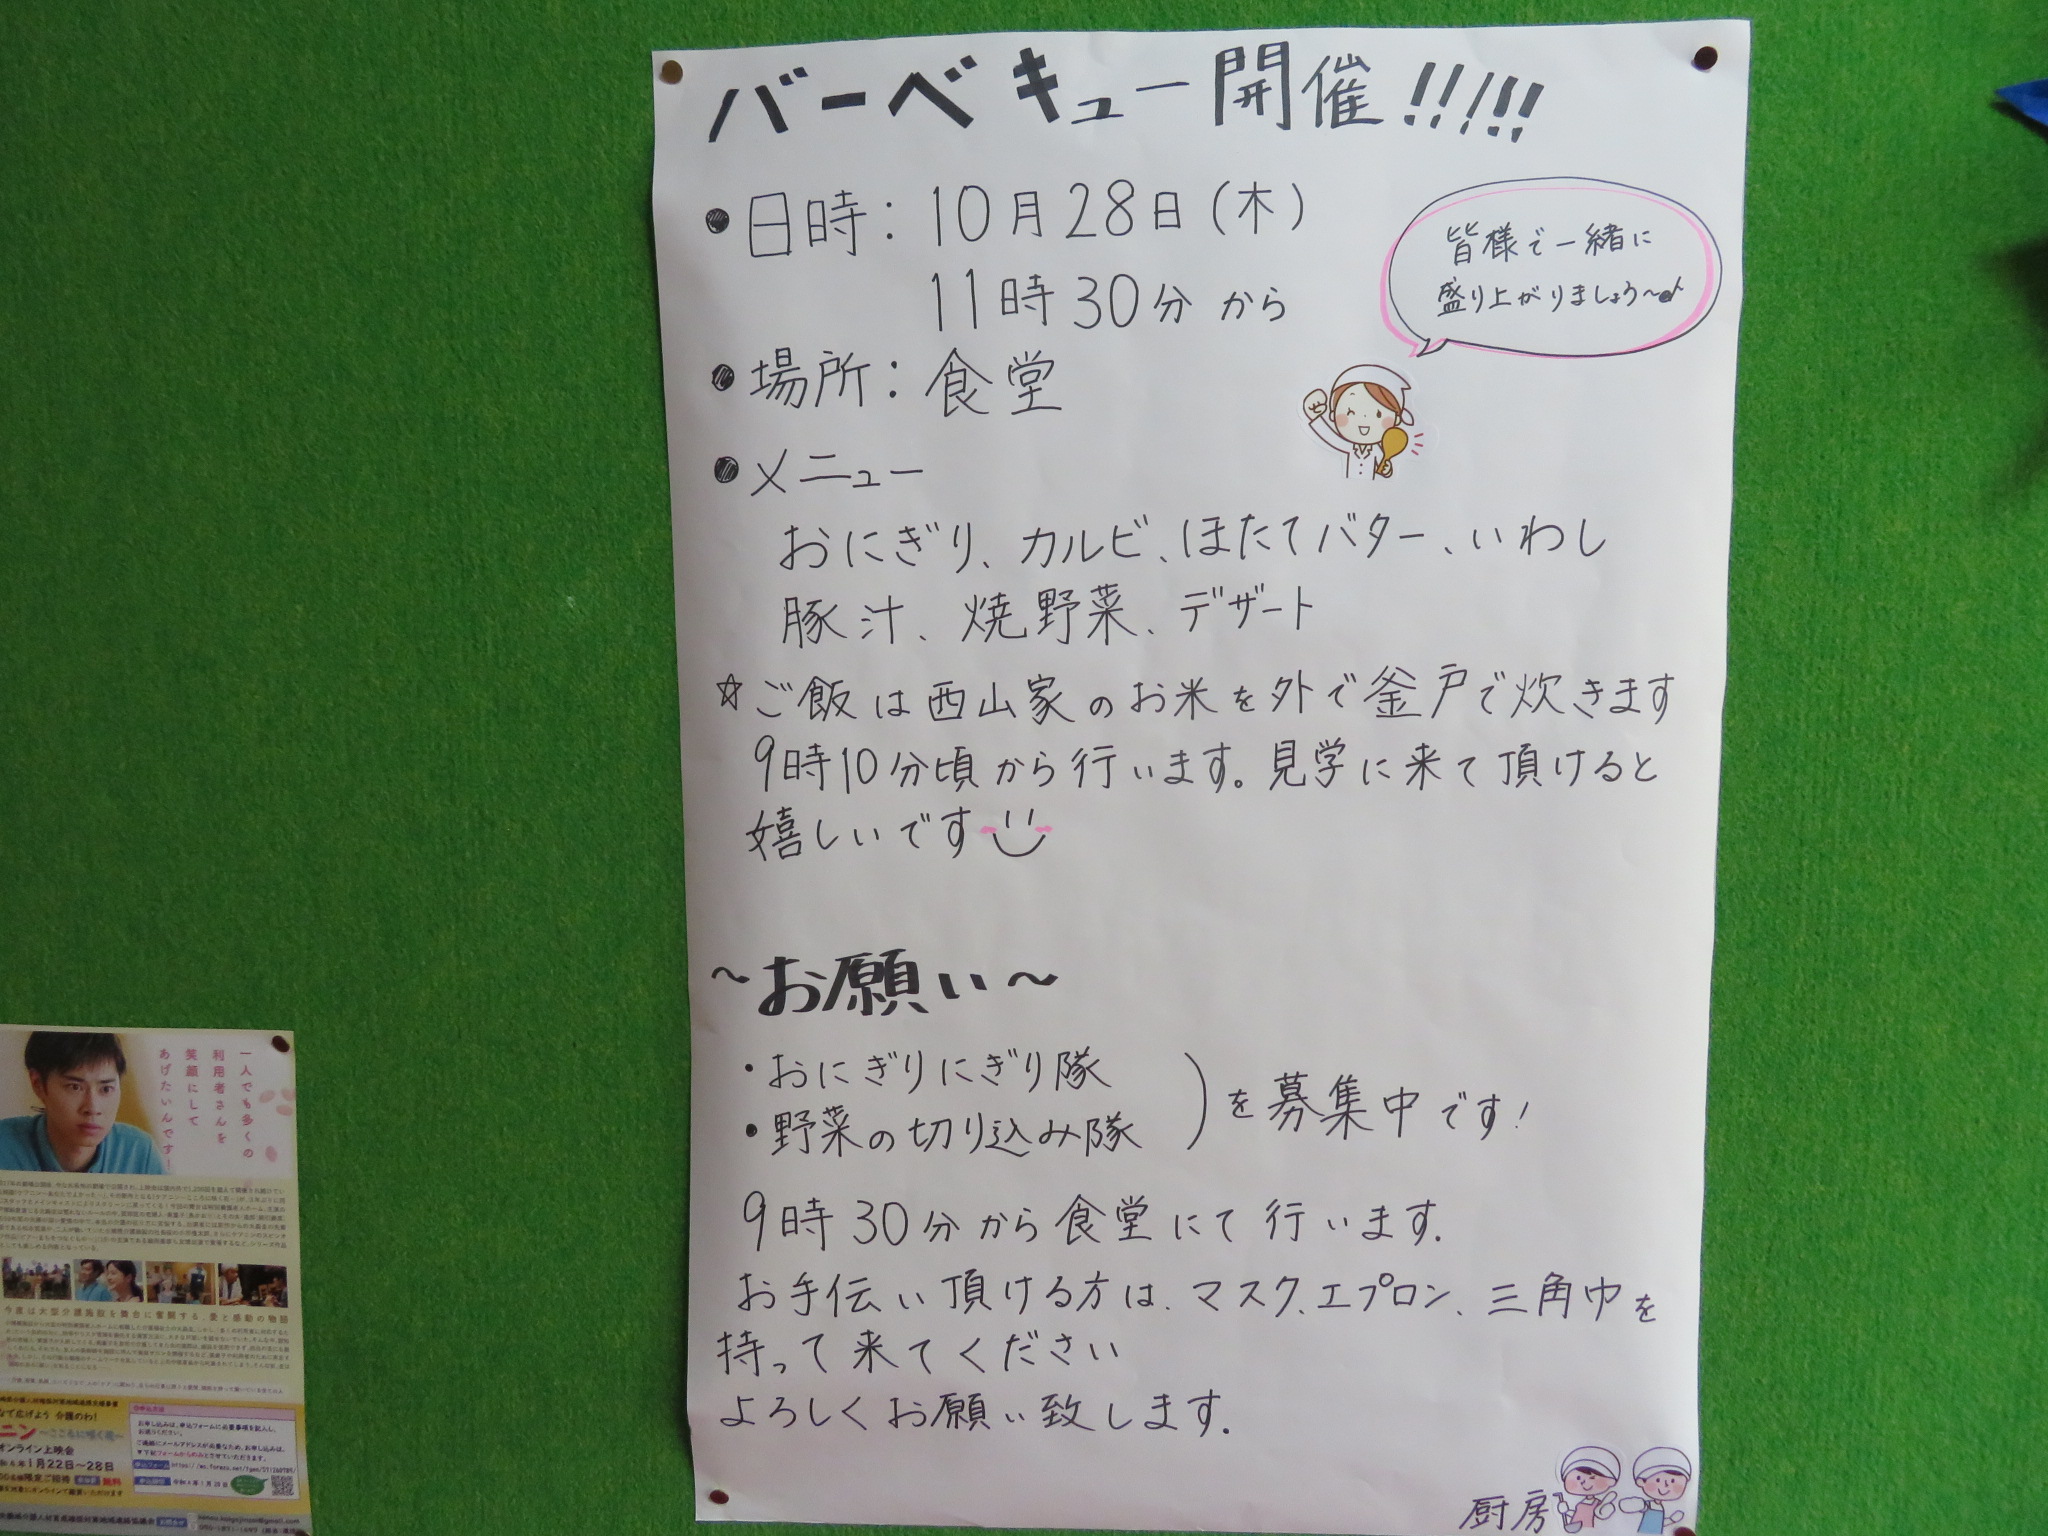 バーベキュー開催!!!!!
●日時：10月28日（木）
11時30分から
皆様で一緒に
盛り上がりましょう〜♪
●場所：食堂
●メニュー
おにぎり、カルビ、ほたてバター、いわし
豚汁、焼野菜、デザート
☆ご飯は西山家のお米を外で釜戸で炊きます
9時10分頃から行います。見学に来て頂けると
嬉しいです
～お願い～
・おにぎりにぎり隊
・野菜の切り込み隊
を募集中です!
9時30分から食堂にて行います.
お手伝い頂ける方は、マスク、エプロン、三角巾を
持って来てください
よろしくお願い致します.
厨房
一人でも多くの
利用者さんを
笑顔にして
あげたいんです!
今度は大型介護施設を舞台に奮闘する、愛と感動の物語
で広げよう 介護のわ!
ニン ～こころに咲く花～
オンライン上映会
1月22日～28日
限定ご招待
無料